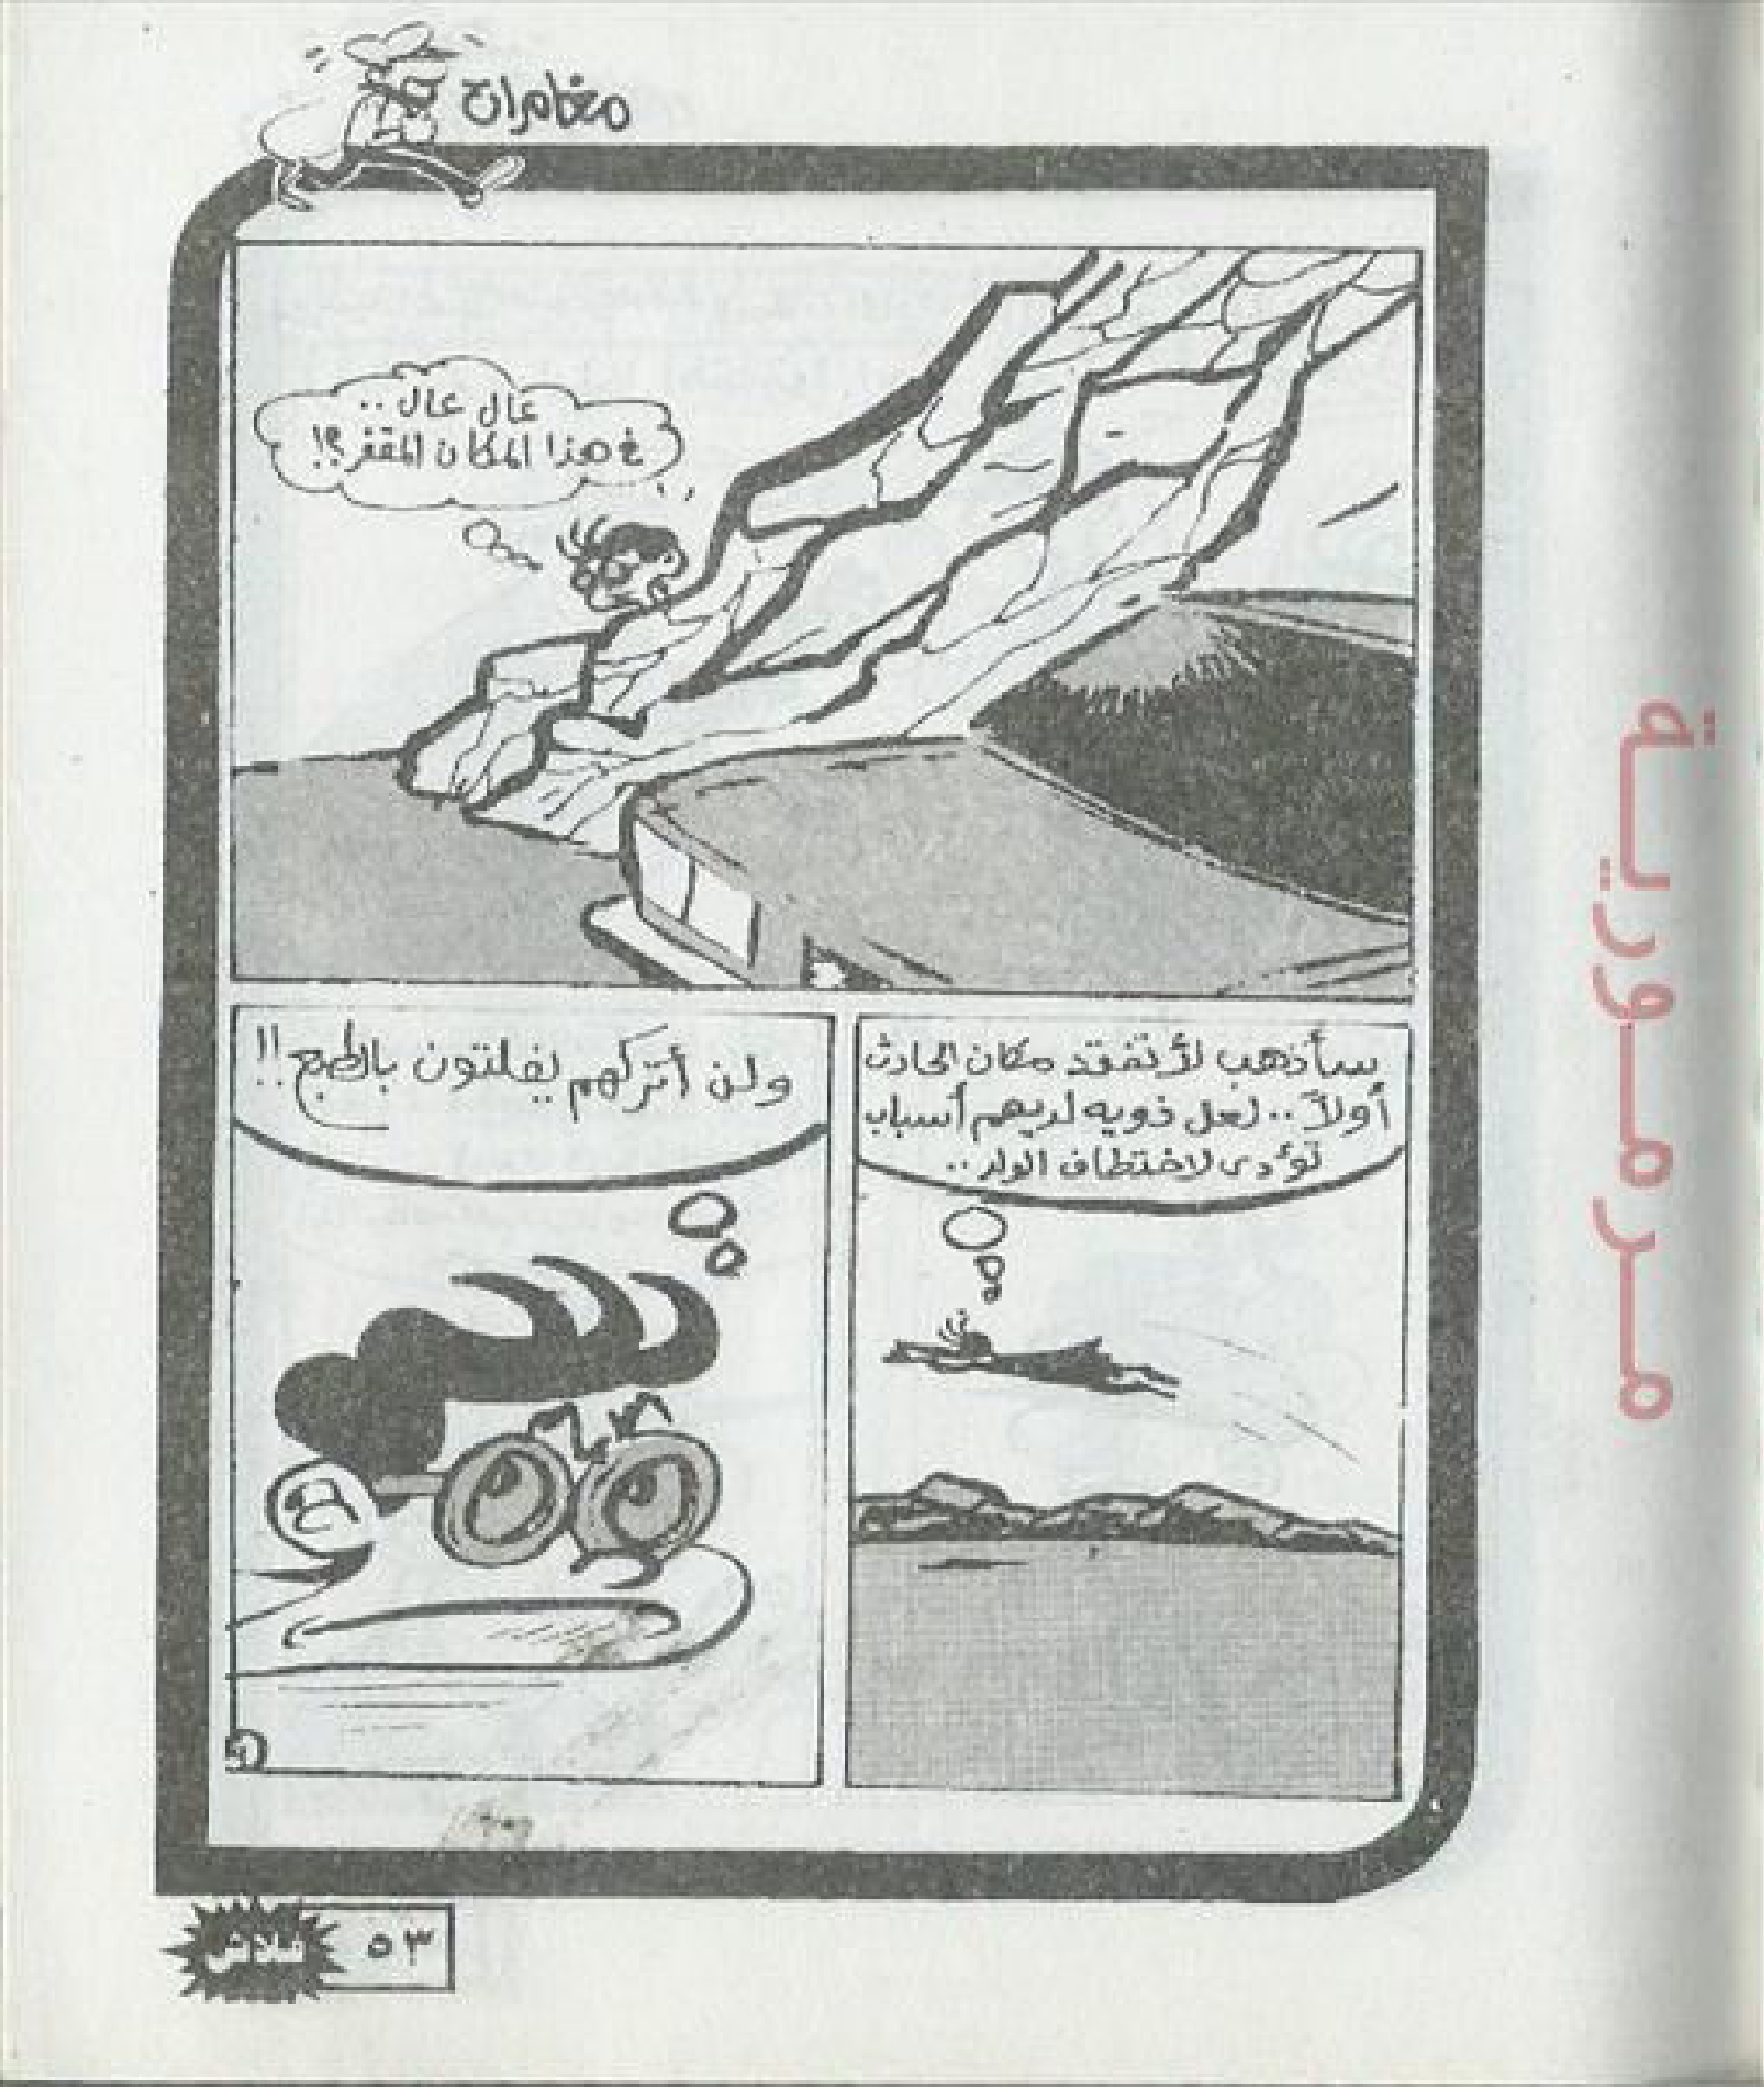 مغامرات
عال عال ..
في هذا المكان المقفر؟!
سأذهب لأتفقد مكان الحادث
أولاً .. لعل ذويه لديهم أسباب
تؤدى لاختطاف الولد ..
ولن أتركهم يفلتون بالطبع !!
فلاش ٥٣
مرمورية